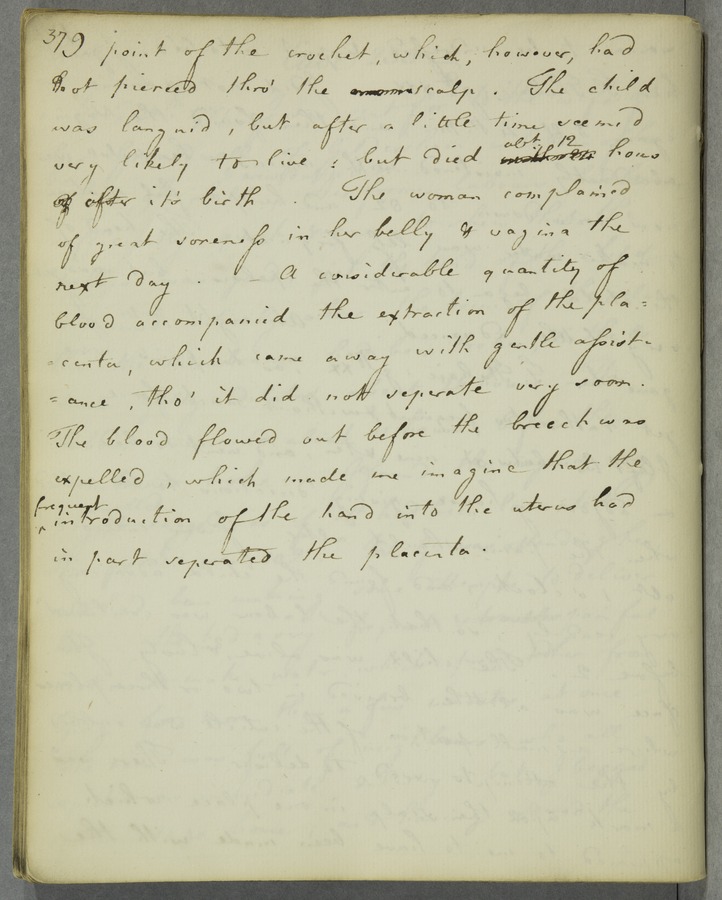 379 point of the crochet, which, however, had
not pierced thro' the scalp. The child
was languid, but after a little time seemed
very likely to live; but died abt. 12 hours
after it's birth. The woman complained
of great soreness in her belly & vagina the
next day. – A considerable quantity of
blood accompanied the extraction of the pla=
=centa, which came away with gentle assist=
=ance, tho' it did not seperate very soon.
The blood flowed out before the breech was
expelled, which made me imagine that the
frequent
introduction of the hand into the uterus had
in part seperated the placenta.